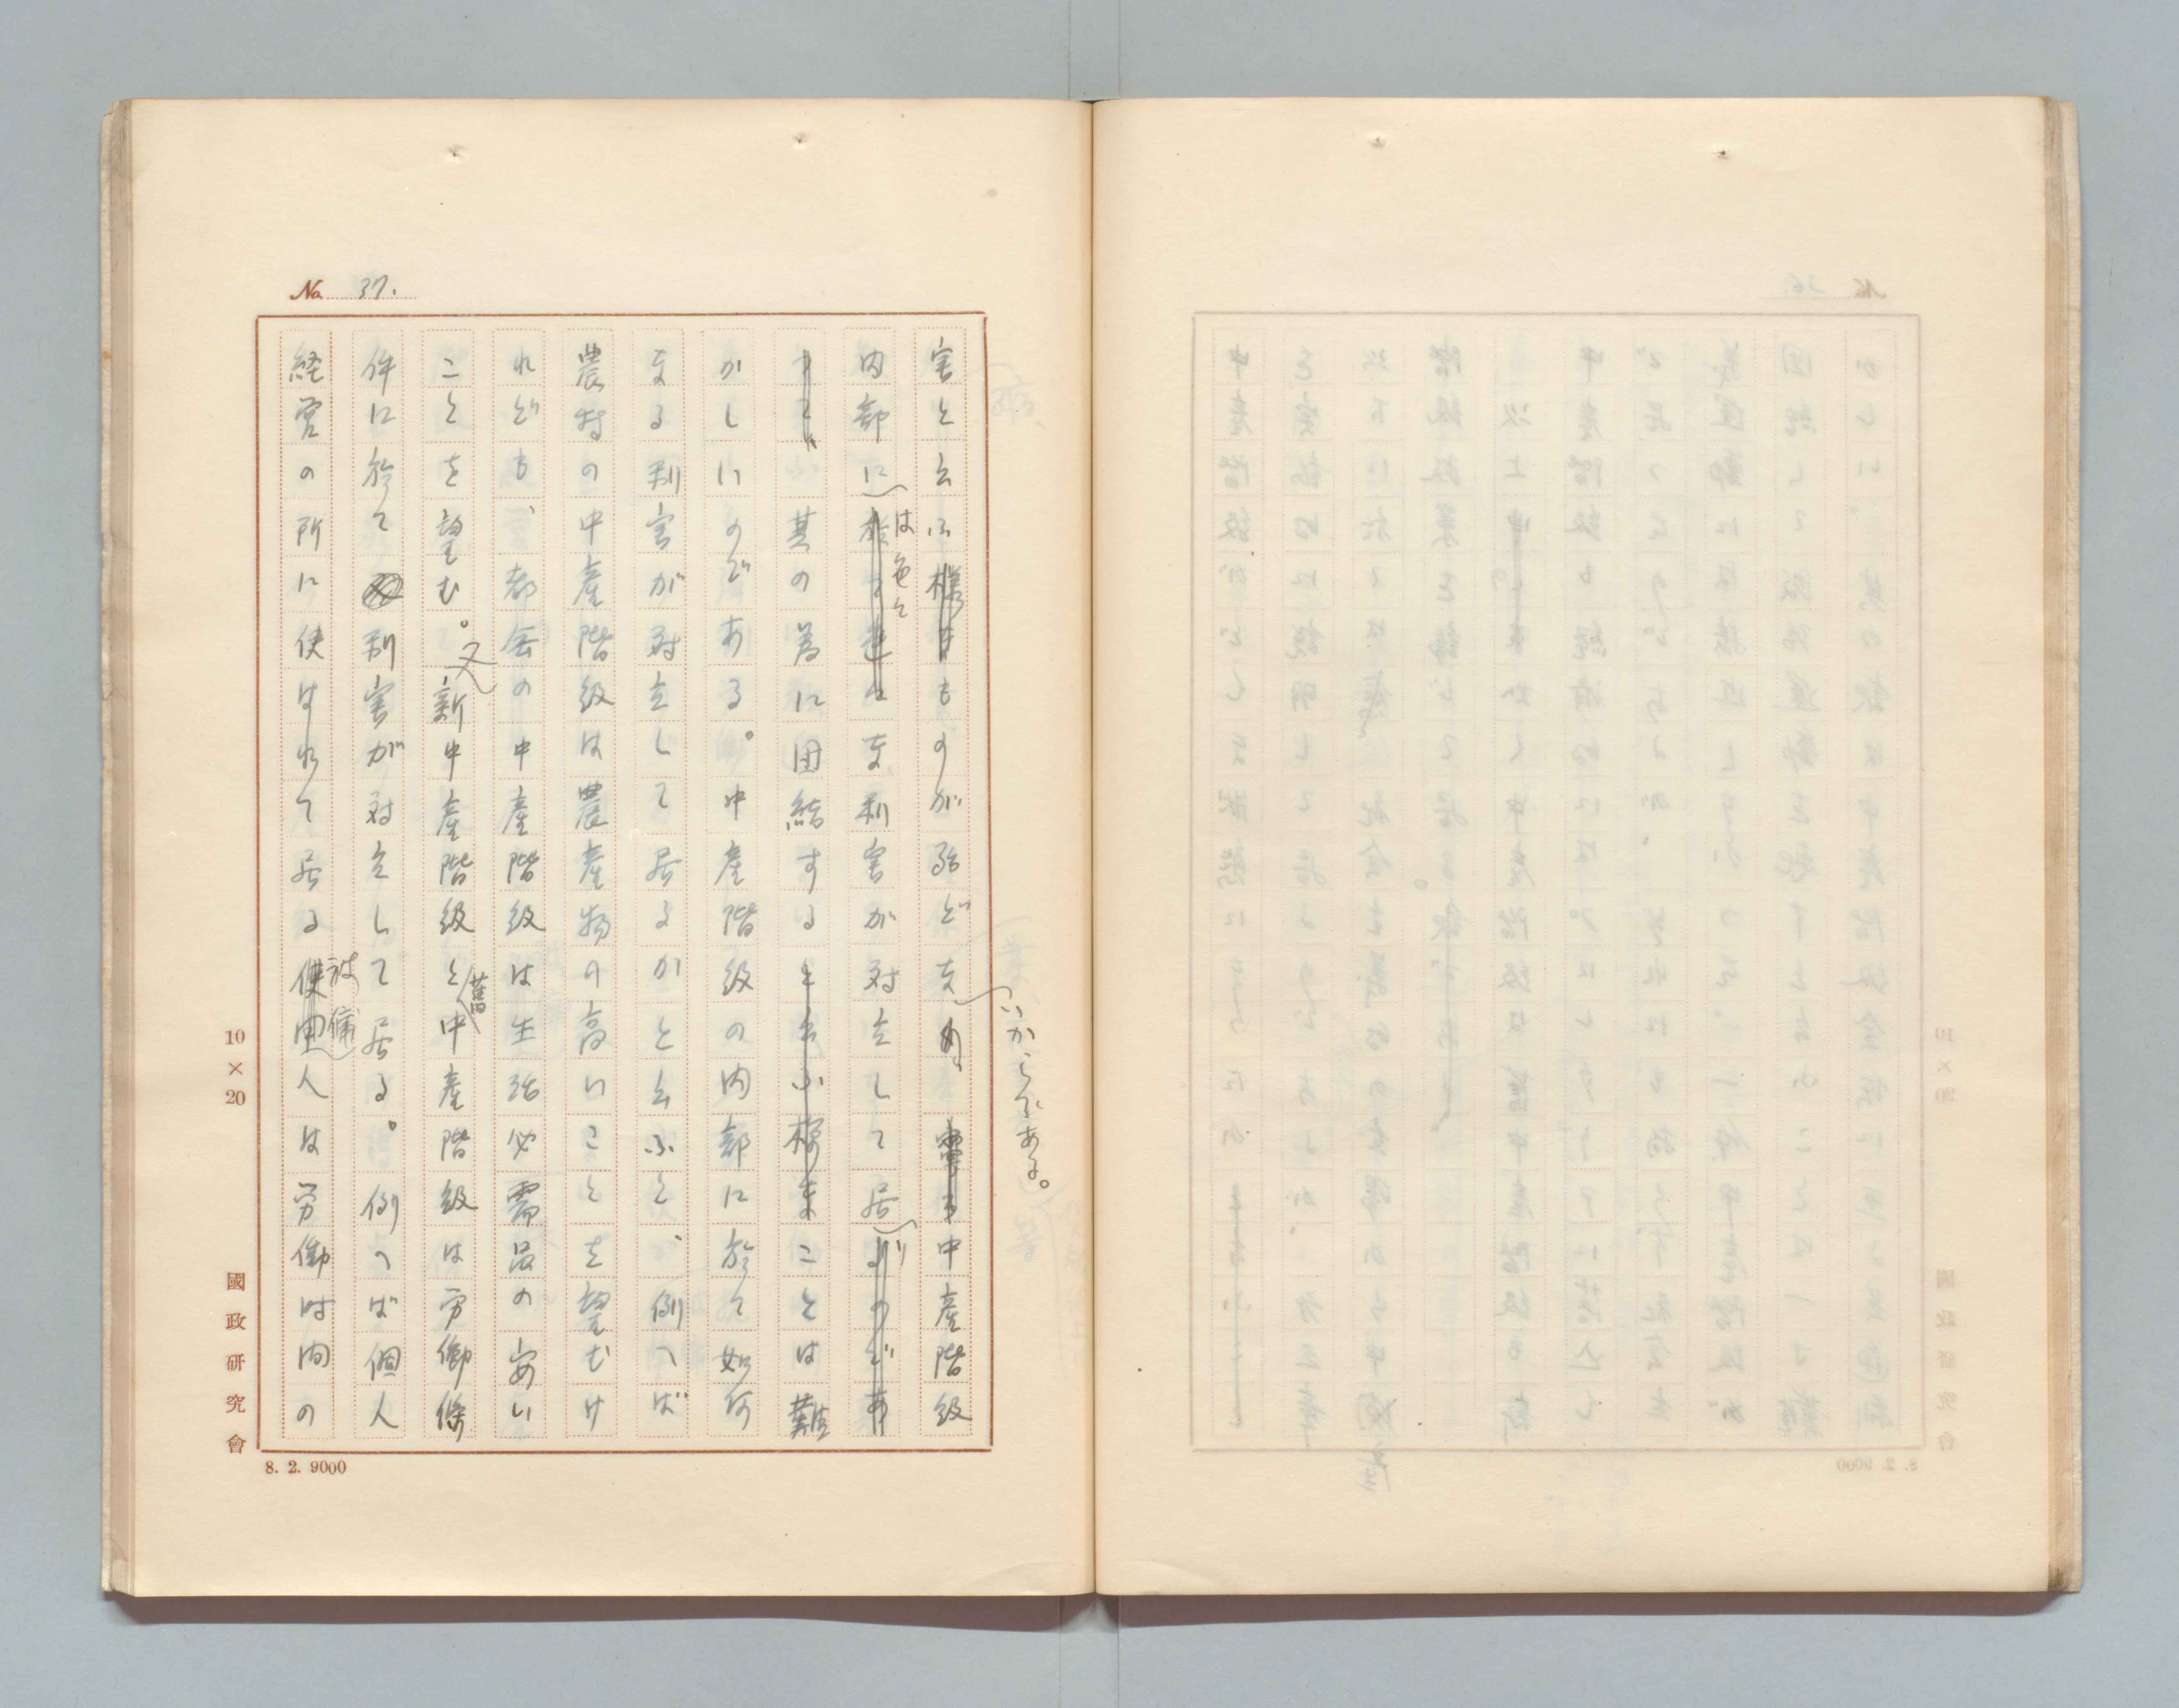 No. 37.
害と云ふ様なものが殆どないからである。中産階級
内部には色々な利害が対立して居り
其の為に団結することは難
かしいのである。中産階級の内部に於て如何
なる利害が対立して居るかと云ふと、例へば
農村の中産階級は農産物の高いことを望むけ
れども、都会の中産階級は生活必需品の安い
ことを望む。又新中産階級と舊中産階級は労働條
件に於て利害が対立して居る。例へば個人
経営の所に使はれて居る被傭人は労働時間の
10×20
國政研究會
8. 2. 9000